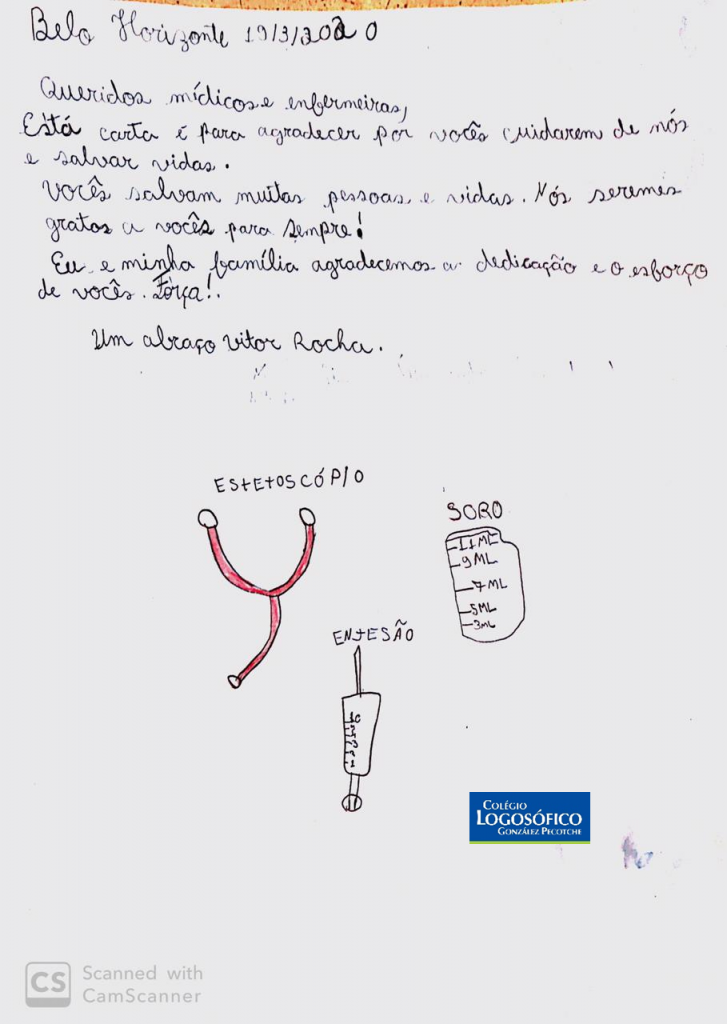 Belo Horizonte 19/3/2020
Queridos médicos e enfermeiras,
Está carta é para agradecer por vocês cuidarem de nós
e salvar vidas.
Vocês salvam muitas pessoas e vidas. Nós seremos
gratos a vocês para sempre!
Eu e minha família agradecemos a dedicação e o esforço
de vocês. Força!.
Um abraço Vitor Rocha.
ESTETOSCÓPIO
SORO
11 ML
9 ML
7 ML
5 ML
3 ML
ENJESÃO
COLÉGIO
LOGOSÓFICO
GONZÁLEZ PECOTCHE
CS Scanned with
CamScanner